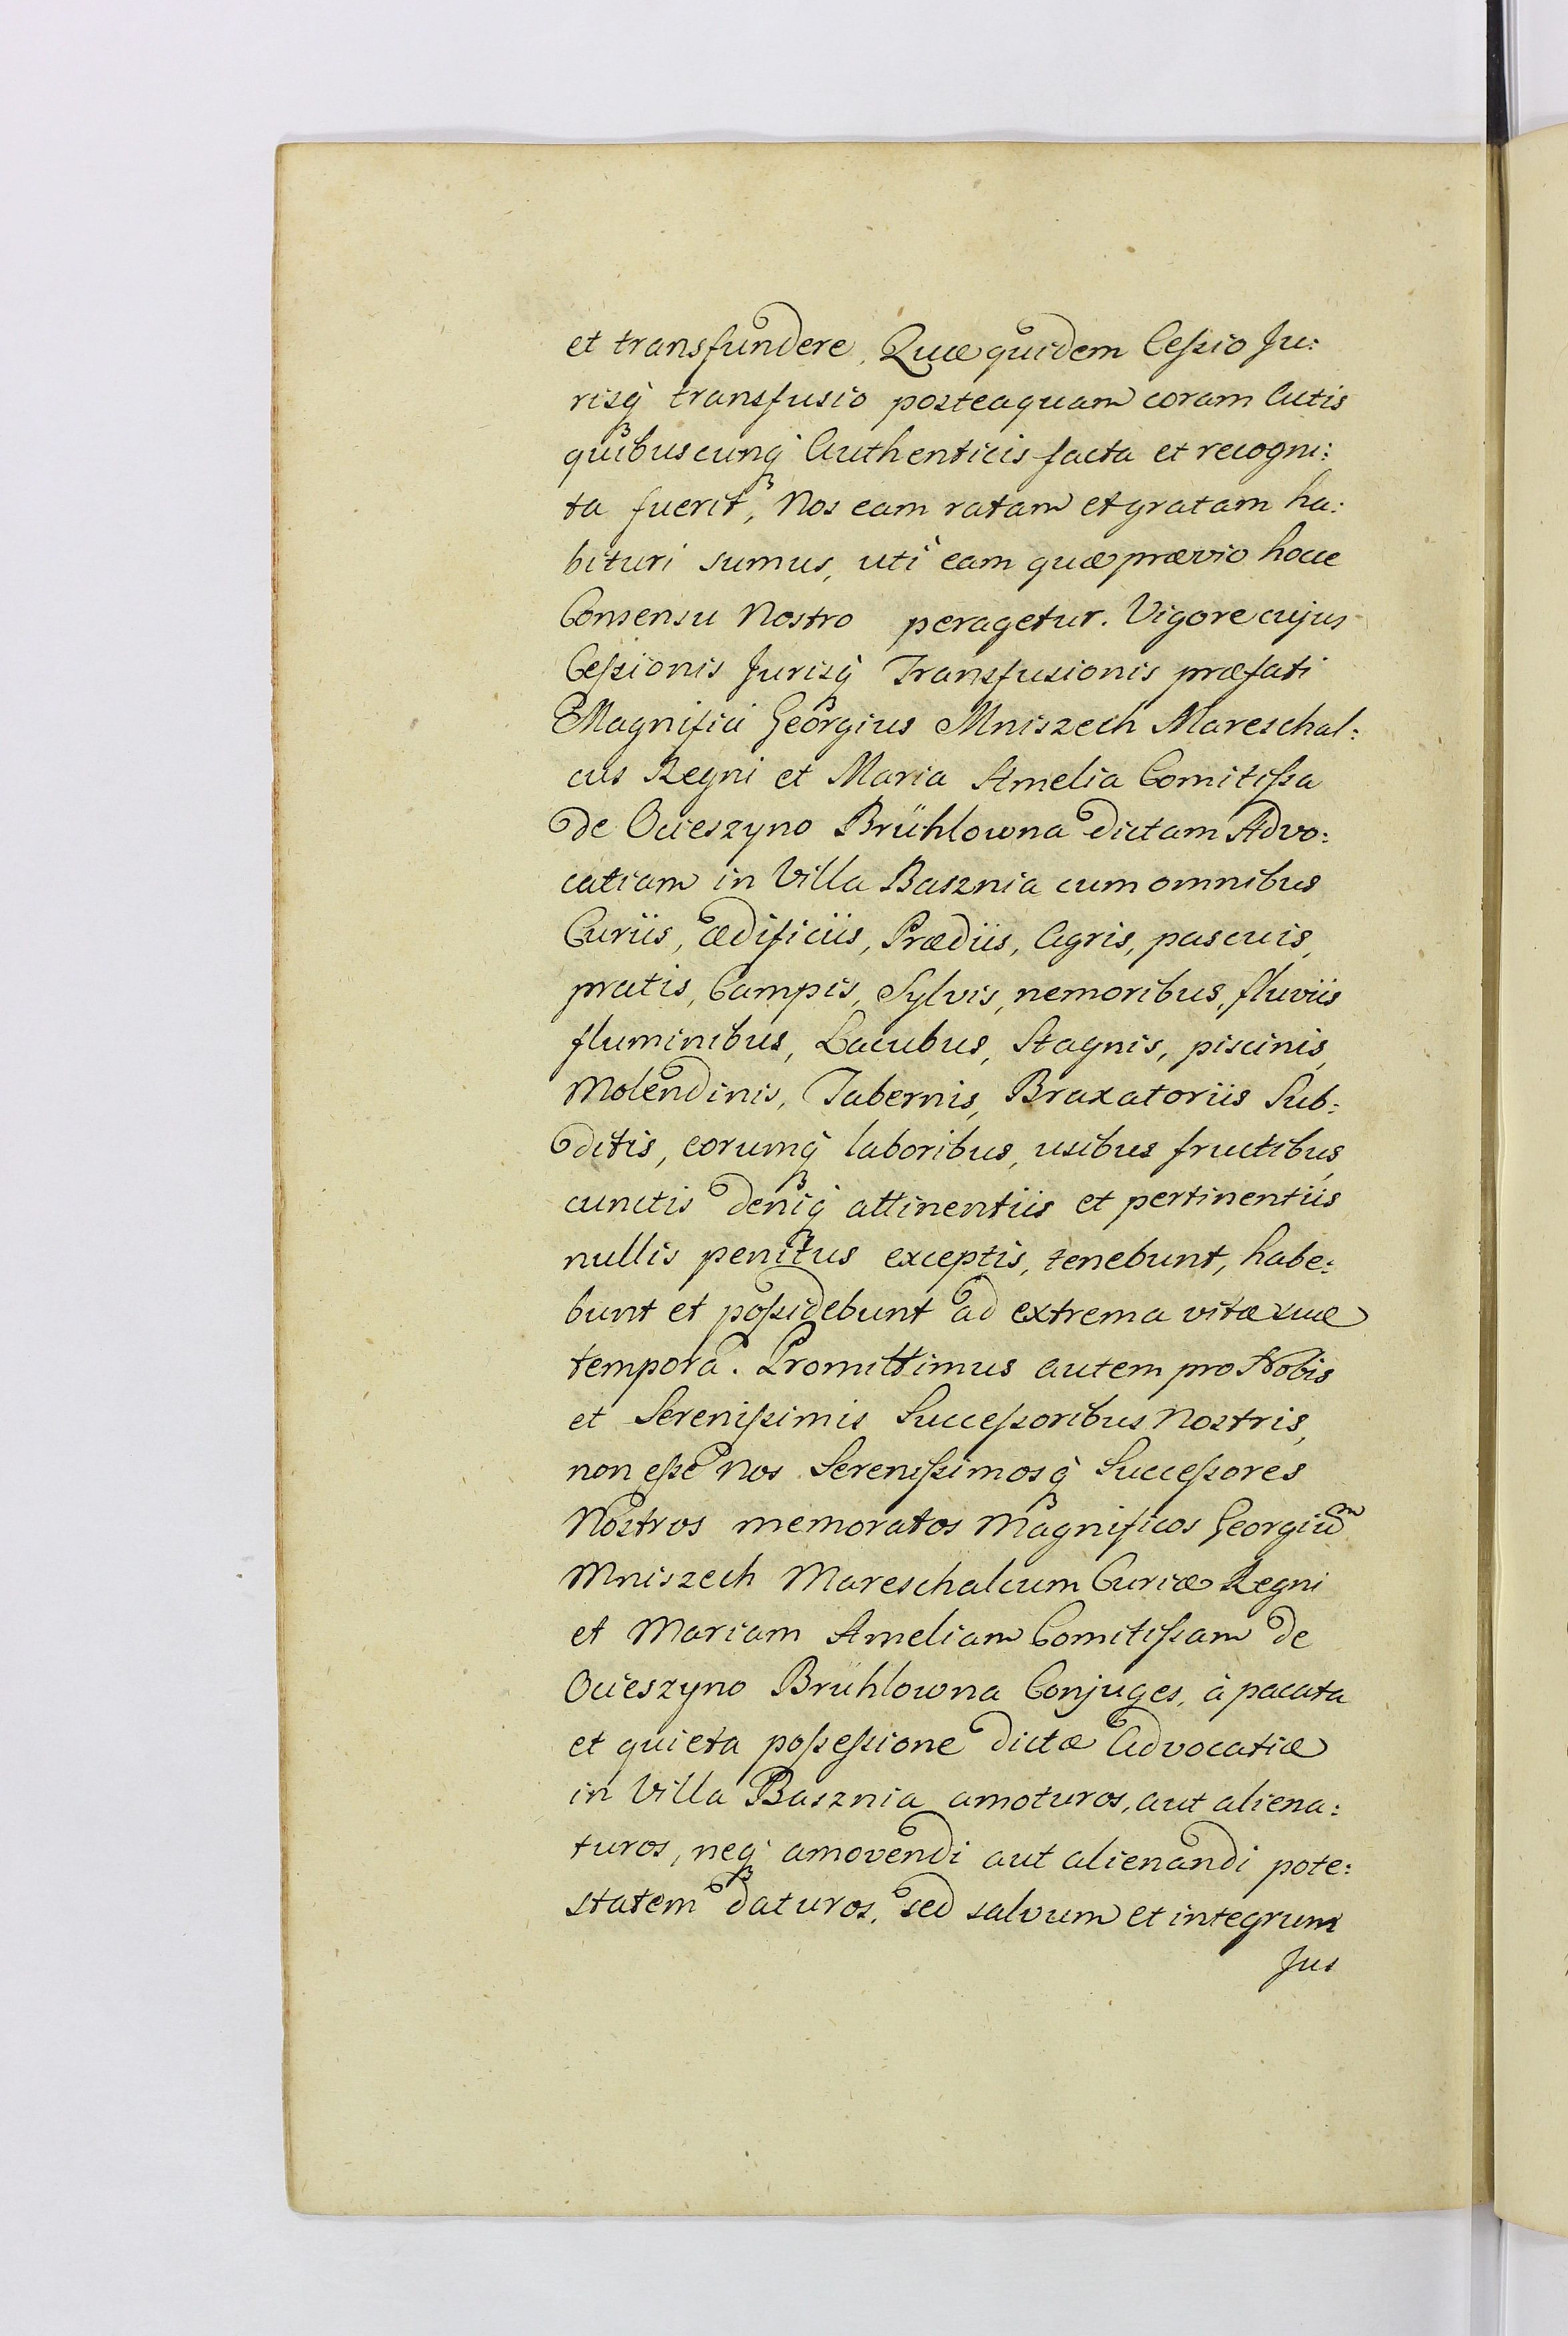 et transfundere, Quæ quidem Cessio Ju:
risq́ꝫ transfusio posteaquam coram Actis
quibuscunq́ꝫ Authenticis facta et recogni:
ta fuerit, Nos eam ratam et gratam ha:
bituri sumus, uti eam quæ prævio hocce
Consensu Nostro peragetur. Vigore cujus
Cessionis Jurisq́ꝫ Transfusionis præfati
Magnifici Georgius Mniszech Mareschal:
cus Regni et Maria Amelia Comitissa
de Ocieszyno Brühlowna dictam Advo:
catiam in Villa Basznia cum omnibus
Curiis, ædificiis, Prædiis, Agris, pascuis,
pratis, Campis, Sylvis, nemoribus, fluviis
fluminibus, Lacubus, Stagnis, piscinis,
Molendinis, Tabernis, Braxatoriis Sub:
ditis, eorumq́ꝫ laboribus, usibus fructibus,
cunctis deniq́ꝫ attinentiis et pertinentiis
nullis penitus exceptis, tenebunt, habe:
bunt et possidebunt ad extrema vitæ suæ
tempora. Promittimus autem pro Nobis
et Serenissimis Successoribus Nostris,
non esse Nos Serenissimosq́ꝫ Successores
Nostros memoratos Magnificos Georgiuᵐ
Mniszech Mareschalcum Curiæ Regni
et Mariam Ameliam Comitissam de
Ocieszyno Brühlowna Conjuges, à pacata
et quieta possessione dictæ Advocatiæ
in Villa Basznia amoturos, aut aliena:
turos, neq́ꝫ amovendi aut alienandi pote:
statem daturos, sed salvum et integrum
Jus